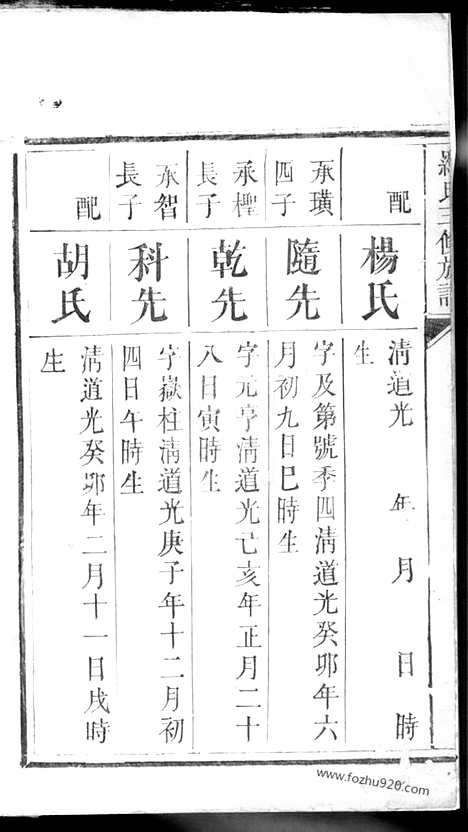 羅氏三修族譜
配
楊氏
清道光　年　月　日　時
生
承璜
四子
隨先
字及第號季四清道光癸卯年六
月初九日巳時生
承樫
長子
乾先
字元亨清道光己亥年正月二十
八日寅時生
承智
長子
科先
字嶽柱清道光庚子年十二月初
四日午時生
配
胡氏
清道光癸卯年二月十一日戌時
生
www.fozhu920.com